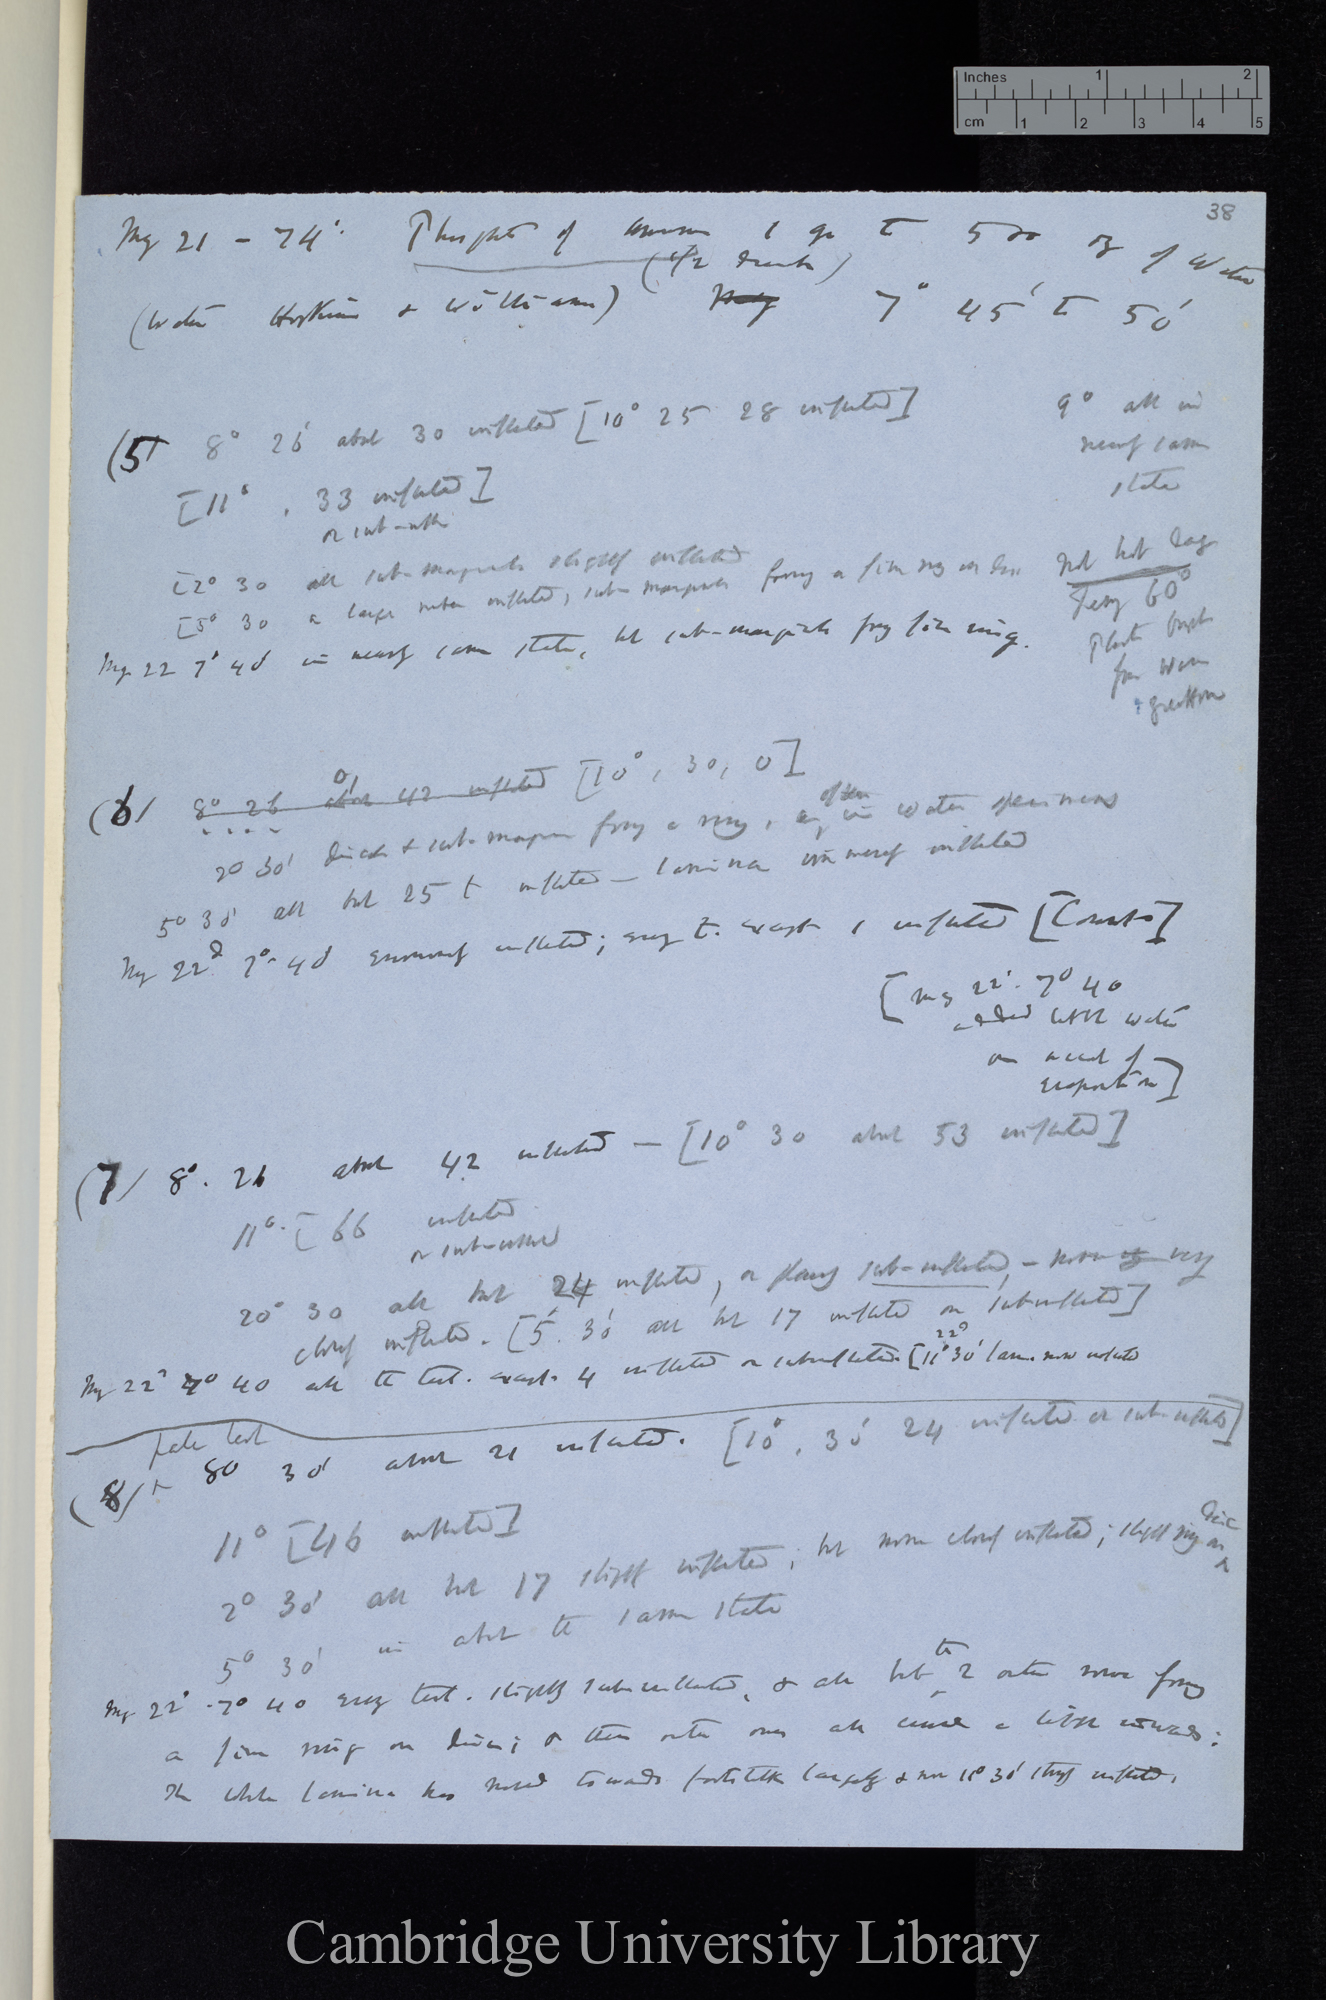 Inches 1 2
cm 1 2 3 4 5
38
May 21 - 74° Phosphate of Ammonia 1 gr to 500 oz of Water
(1/2 drach)
(Water Hoffmann & Williams) 7° 45' to 50'
(5) 8° 26' about 30 inflected [10° 25 28 inflected]
9° all in
nearly same
state
[11° . 33 inflected]
or sub-infl
[2° 30 all sub-marginals slightly inflected
[5° 30 a large number inflected, sub-marginals forming a fine ring on disc
May 22 7° 40' in nearly same state, but sub-marginals fring fine ring.
Not hot day
Temp 60°
Plants brought
from Warm
greenhouse
(6) 8° 26 about 42 inflected [10°, 30, 0]
2° 30' discal & sub-marginal forming a ring, as often in water specimens
5° 30' all but 25 t inflected — lamina immensely inflected
May 22d 7° 40' enormously inflected; every t. except 1 inflected [Counted]
[May 22' 7° 40
added little water
on account of
evaporation]
(7) 8°. 26 about 42 inflected — [10° 30 about 53 inflected]
11°. [66 inflected
or sub-inflected
20° 30 all but 24 inflected, or plainly sub-inflected, — none very
closely inflected. [5. 30' all but 17 inflected or subinflected]
May 22' 7° 40 all the tent. except 4 inflected or subinflected [11° 30' lam. now inflected
22°
pale leaf
(8) + 8° 30' about 21 inflected. [10°, 30' 24 inflected or sub-inflected]
11° [46 inflected]
2° 30' all but 17 slightly inflected; but none closely inflected; slight ring on
disc
5° 30' in about the same state
May 22' - 7° 40 every tent. slightly subinflected, & all but the 2 outer rows forming
a fine ring on disc; & these outer ones all curved a little inwards:
The whole lamina has moved towards footstalk largely & now 11° 30' strongly inflected.
Cambridge University Library